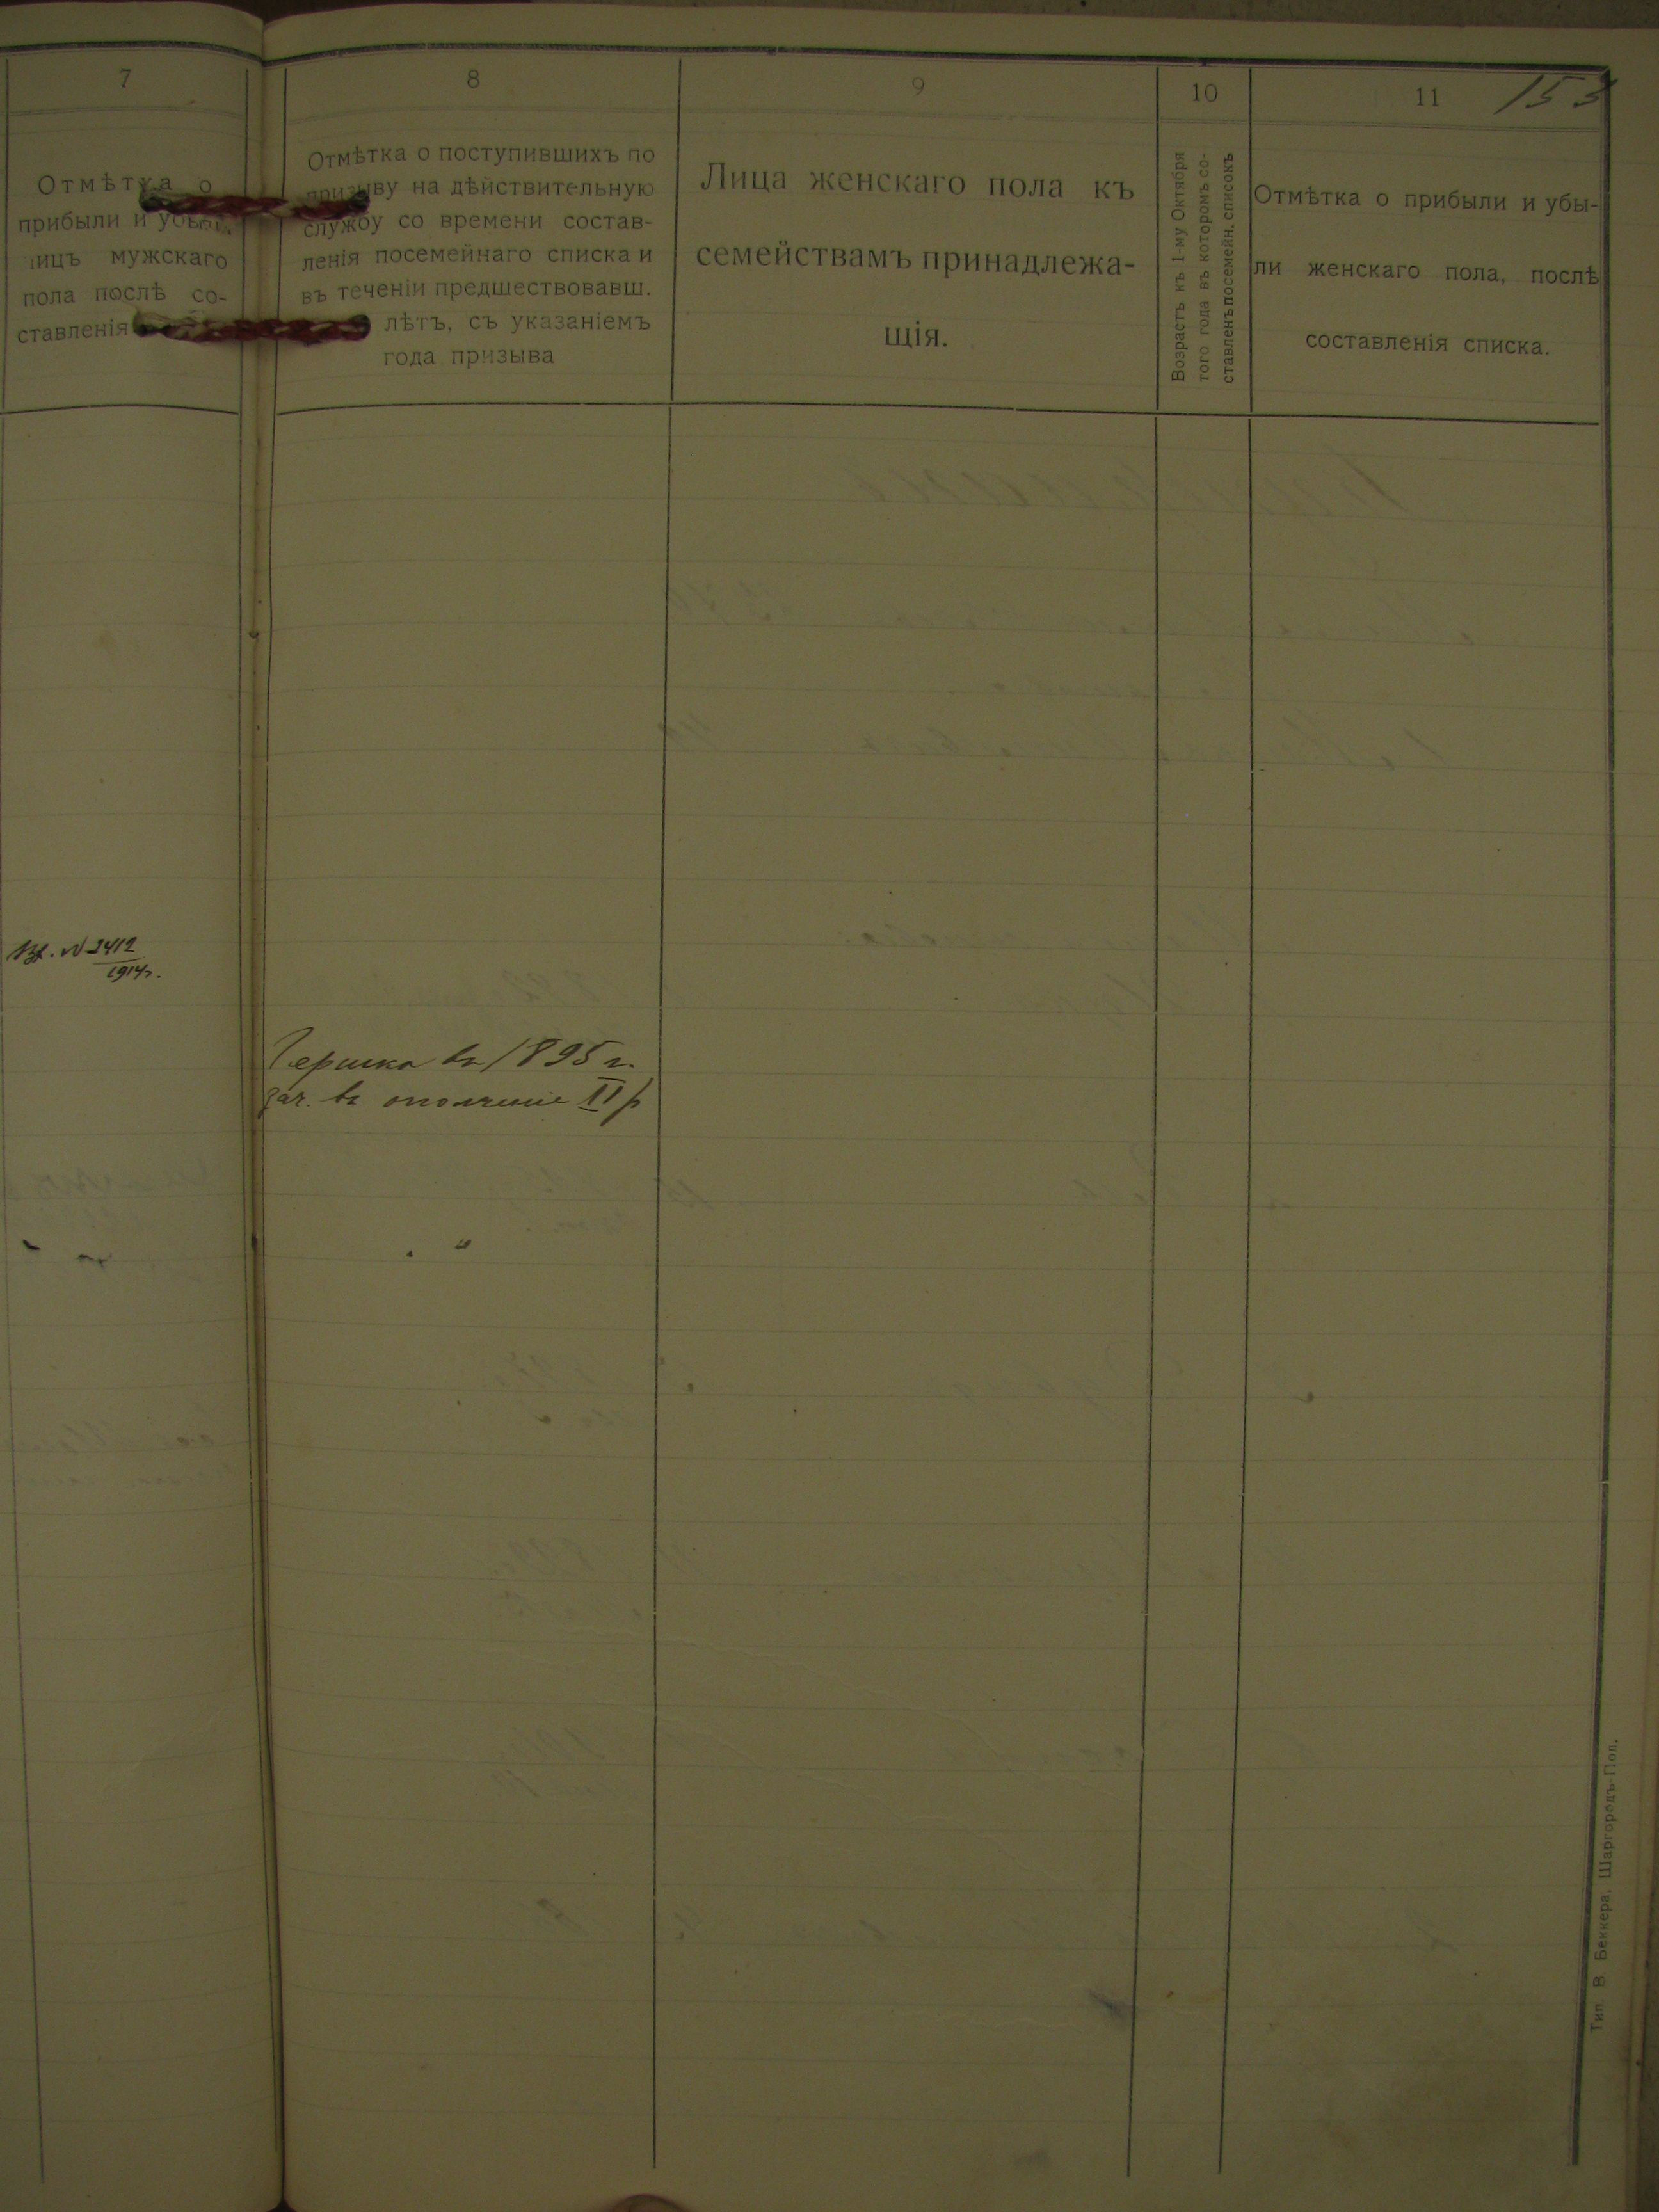 7
Отмѣтка о
прибыли и
лицъ мужскаго
пола послѣ со-
ставленія
8
Отмѣтка о поступившихъ по
призыву на дѣйствительную
службу со времени состав-
ленія посемейнаго списка и
въ теченіи предшествовавш.
лѣтъ, съ указаніемъ
года призыва
9
Лица женскаго пола къ
семействамъ принадлежа-
щія.
10
Возрастъ къ 1-му Октября
того года въ которомъ со-
ставленъ посемейн. списокъ
11
153
Отмѣтка о прибыли и убы-
ли женскаго пола, послѣ
составленія списка.
№ 2412
1914 г.
Гершко въ 1895 г.
зач. въ ополченіе II р
"
Тип. В. Беккера, Шаргородъ-Под.